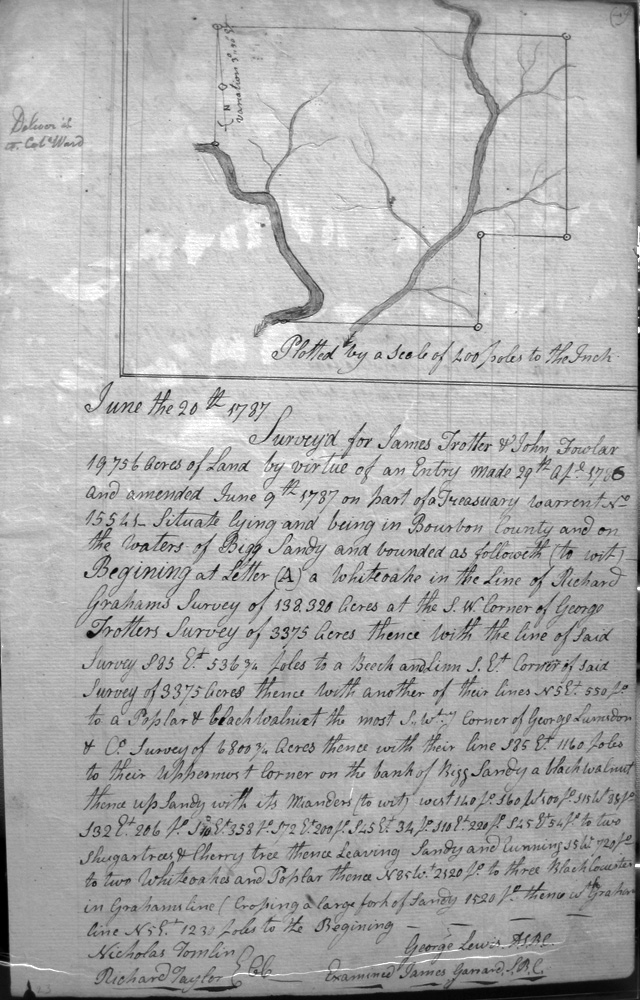 N
Variation
Deliver it
to Col. Ward
Plotted by a Scale of 200 poles to the Inch
June the 20th 1787
Survey'd for James Trotter & John Fowlar
19,756 Acres of Land by virtue of an Entry made 29th Apl. 1786
and amended June 9th 1787 on part of a Treasuary warrent No
15541 Situate lying and being in Bourbon County and on
the waters of Bigg Sandy and bounded as followeth (to wit)
Begining at Letter (A) a Whiteoake in the Line of Richard
Grahams Survey of 138,320 Acres at the S.W. Corner of George
Trotters Survey of 3375 Acres thence with the line of said
Survey S85 Et. 536 3/4 poles to a Beech and Linn S. Et. Corner of said
Survey of 3375 Acres thence with another of their lines N5Et. 550 po.
to a Poplar & blackwalnut the most S. Wt.ly Corner of George Lumsdon
& Co. Survey of 6800 3/4 Acres thence with their line S85 Et. 1160 poles
to their Uppermost Corner on the bank of Bigg Sandy a blackwalnut
thence up Sandy with its Meanders (to wit) west 140 po. S60 W. 500 po. S15 W. 38 po.
S32 Et. 206 po. Et. 358 po. S72 Et. 200 po. S45 Et. 34 po. S10 Et. 220 po. S45 Et. 54 po. to two
Shugartrees & Cherry tree thence Leaving Sandy and Running S5 Wt. 720 po.
to two Whiteoakes and Poplar thence N85 Wt. 2520 po. to three Black Locusts
in Grahams line (Crossing a large fork of Sandy 1520 po. thence wth. Graham
line N5 Et. 1230 poles to the Begining
Nicholas Tomlin
Richard Taylor } CC
George Lewis A.S.B.C.
Examined James Garrard S.B.C.